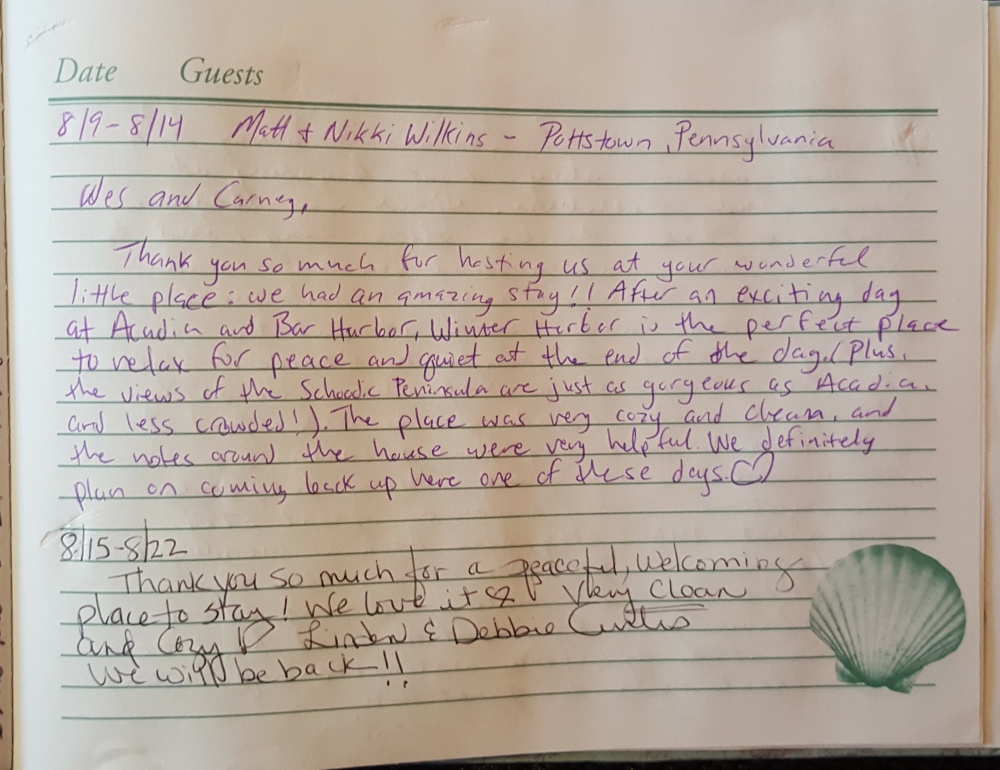 Date Guests
8/9-8/14 Matt & Nikki Wilkins - Pottstown, Pennsylvania
Wes and Carney,
Thank you so much for hosting us at your wonderful
little place: we had an amazing stay!! After an exciting day
at Acadia and Bar Harbor, Winter Harbor is the perfect place
to relax for peace and quiet at the end of the day. (Plus,
the views of the Schoodic Peninsula are just as gorgeous as Acadia,
and less crowded!). The place was very cozy and clean, and
the notes around the house were very helpful. We definitely
plan on coming back up here one of these days. ♡
8/15-8/22
Thank you so much for a peaceful, welcoming
place to stay! We love it ♡! Very Clean
and Cozy ♡ Linden & Debbie Curtis
We will be back!!